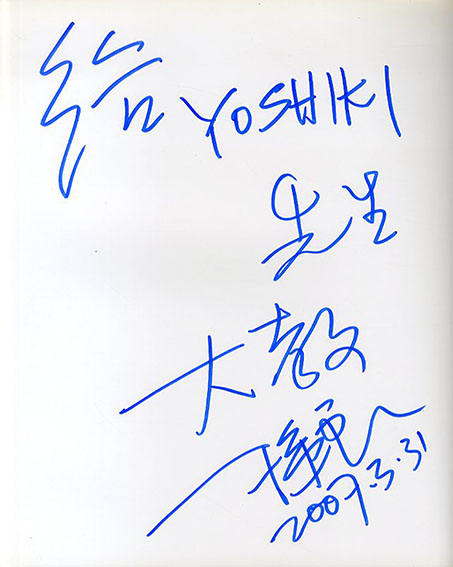 给 YOSHIKI
先生
大
2007.3.31